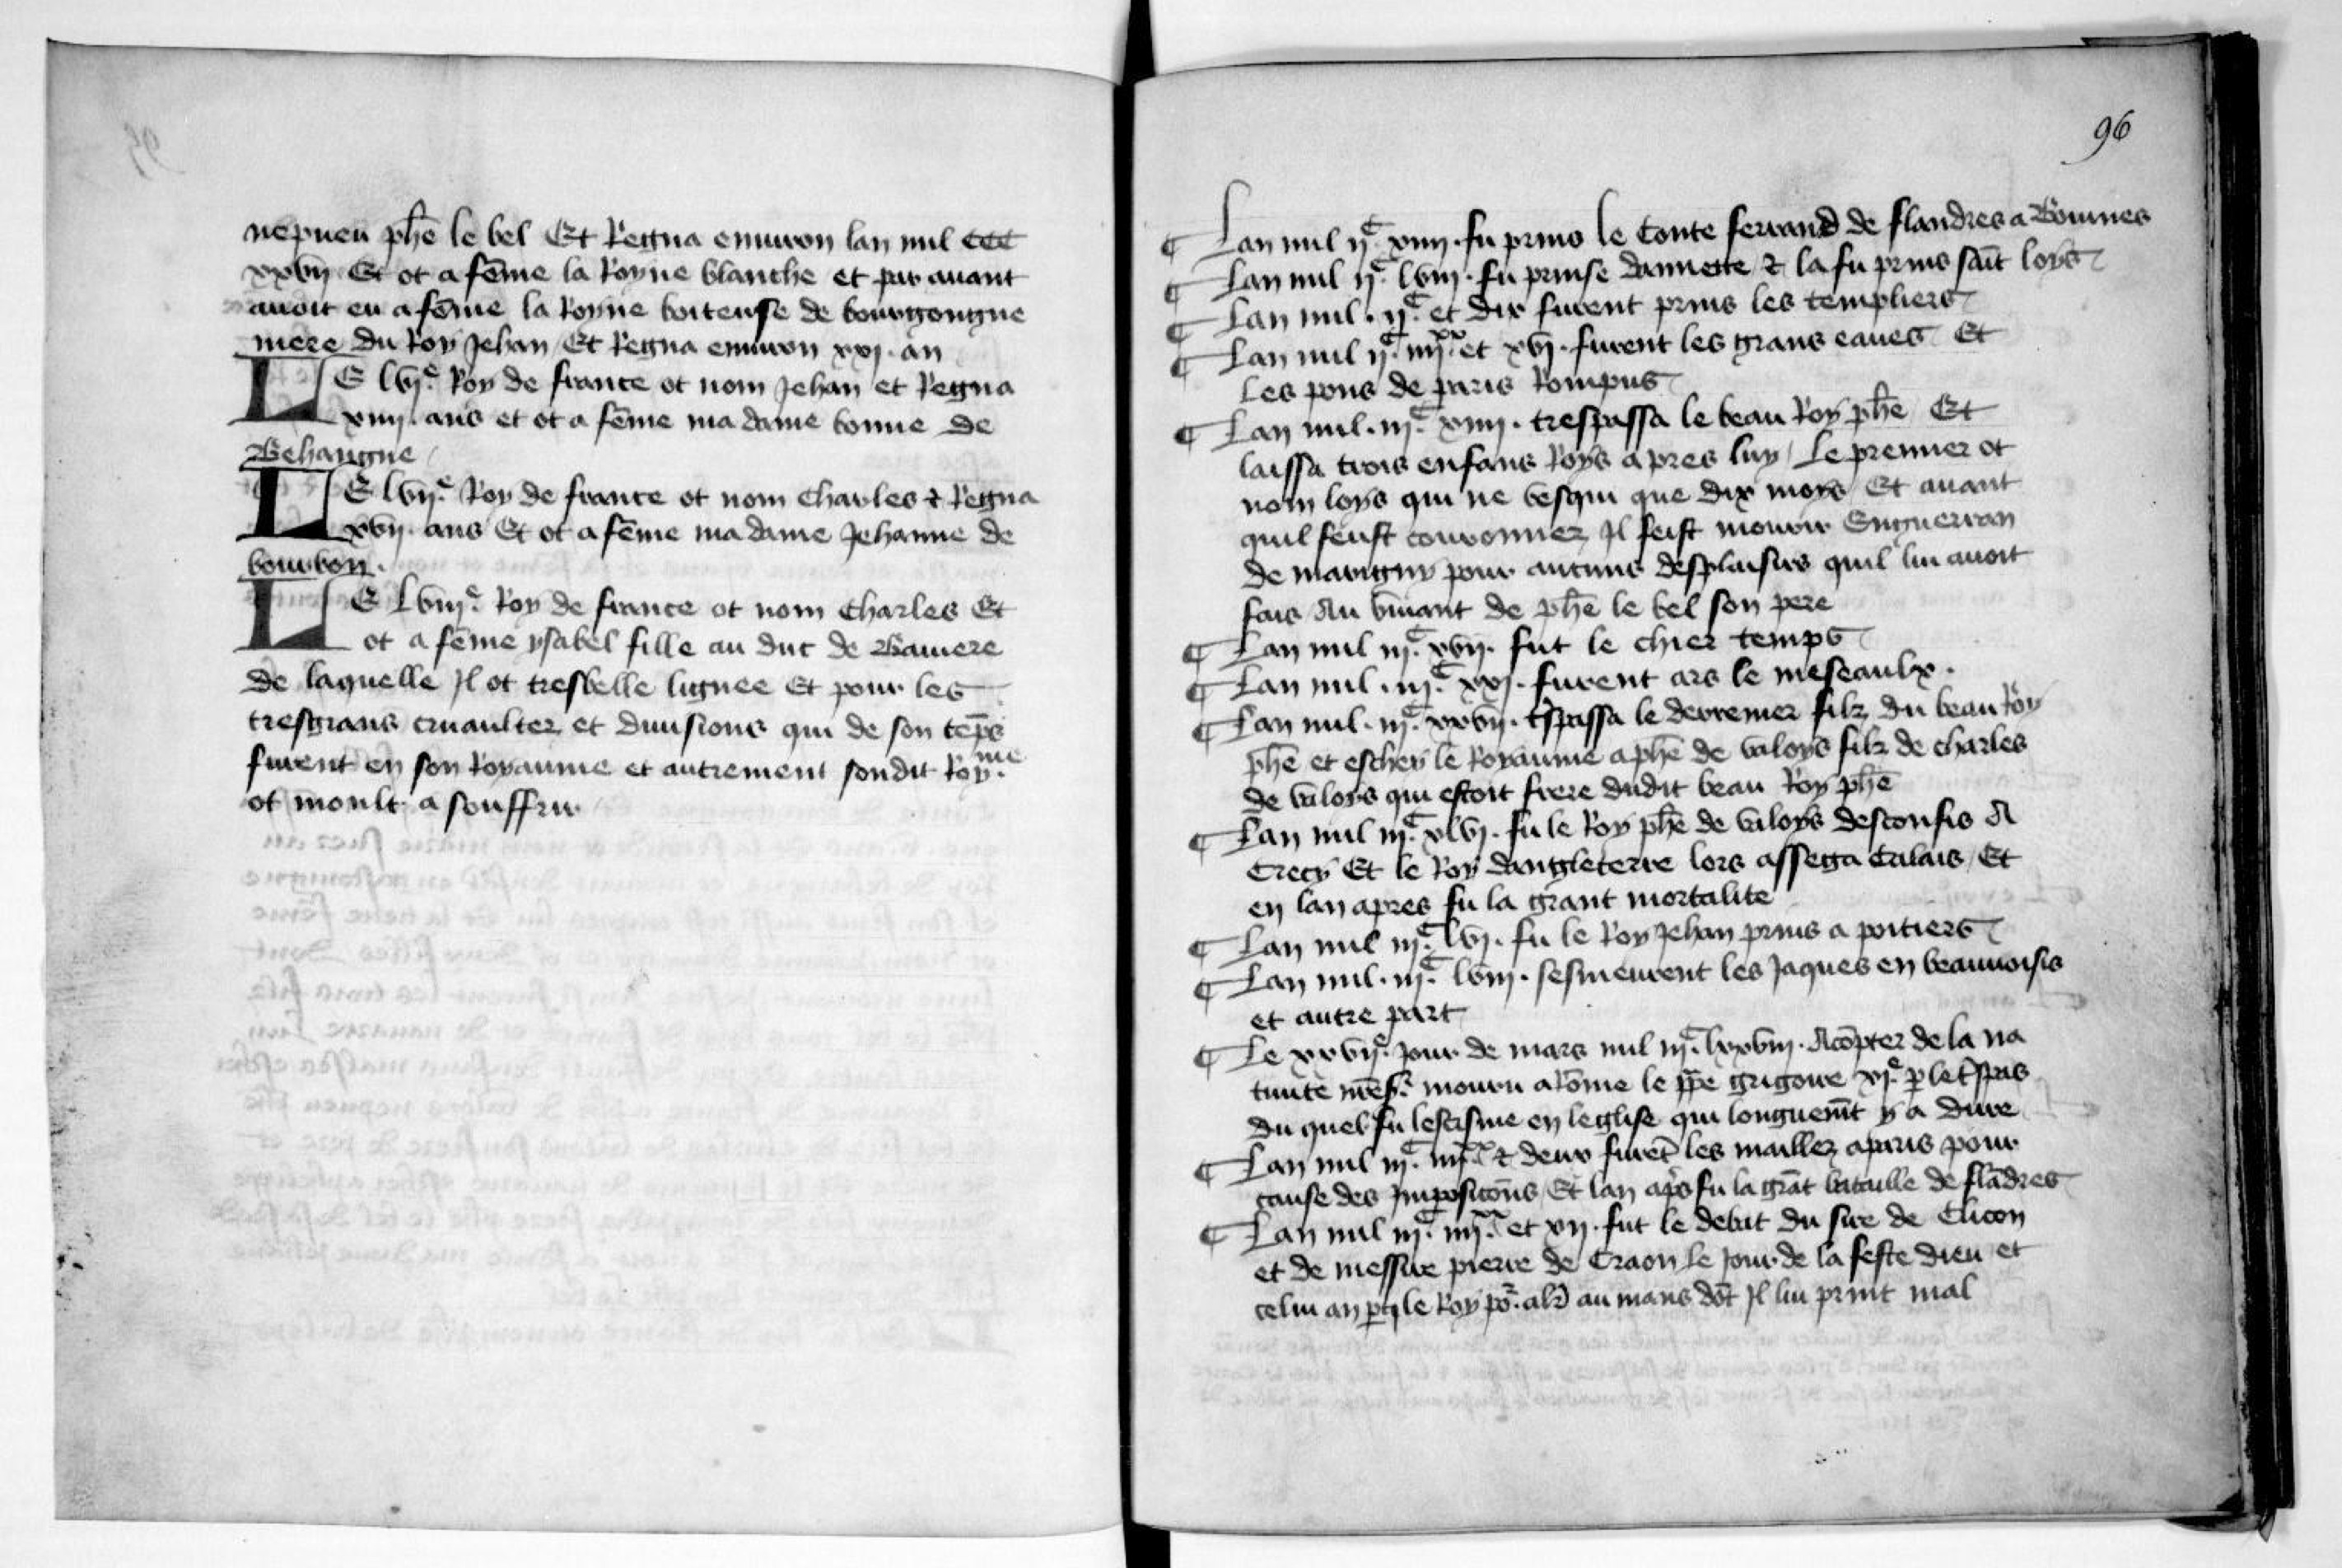 nepueu phē le bel Et Regna enuiron lan mil CCC
xxvii Et ot a fēme la Royne blanche et par auant
auoit eu a fēme la Royne boiteuse de bourgongne
mere du Roy Jehan Et Regna enuiron xxj. an
LE lvi.e Roy de france ot nom Jehan et Regna
xiiii. ans et ot a fēme ma dame bonne de
Behaigne
LE lvii.e Roy de france ot nom Charles & Regna
xvii. ans Et ot a fēme ma dame Jehanne de
bourbon.
LE Lviii.e Roy de france ot nom Charles Et
ot a fēme ysabel fille au duc de Bauiere
de laquelle Jl ot tresbelle lignee Et pour les
tresgrans cruaultez et diuisions qui de son tēps
furent en son Royaume et autrement sondit Roy.me
ot moult a souffrir
96
Lan mil ii.C xiiii. fu prins le Conte ferrand de flandres a Bouines
Lan mil ii.C lviii. fu prinse damiette & la fu prins saīt loys
Lan mil. ii.C et dix furent prins les templiers
Lan mil ii.C iiii.xx et xvi. furent les grans eaues Et
Les pons de paris Rompus
Lan mil. iii.C xiiii. trespassa le beau Roy phē Et
laissa trois enfans Roys apres luy Le premier ot
nom loys qui ne vesqui que dix moys Et auant
quil feust couronnez Jl feist mourir Enguerran
de marigny pour aucuns desplaisirs quil lui auoit
fais Au viuant de phē le bel son pere
Lan mil iii.C xvii. fut le chier temps
Lan mil. iii.C xxj. furent ars le meseaulx.
Lan mil. iii.C xxvii. t̄spassa le derremier filz du beau Roy
phē et eschey le Royaume a phē de valoys filz de charles
de valoys qui estoit frere dudit beau Roy phē
Lan mil iii.C xlvi. fu le Roy phē de valoys desconfis A
Crecy Et le Roy dangleterre lors assega Calais Et
en lan apres fu la grant mortalite
Lan mil iii.C lvi. fu le Roy Jehan prins a poitiers
Lan mil. iii.C lviii. sesmeurent les Jaques en beauuoisis
et autre part
Le xxvii.e jour de mars mil iii.C lxxviii. Acōpter de la na
tiuite mourn a Rōme le ppe grigoire xi.e p le t̄spas
du quel fu lescisme en leglise qui longuemt y a dure
Lan mil iii.C iiii.xx & deux furēt les maillez aparis pour
cause des Jmposicōns Et lan ap̄s fu la grāt bataille de flādres
Lan mil iii.C iiii.xx et xii. fut le debat du sire de Clicon
et de messire pierre de Craon le jour de la feste dieu et
celui an le Roy au mans dōt Jl lui print mal